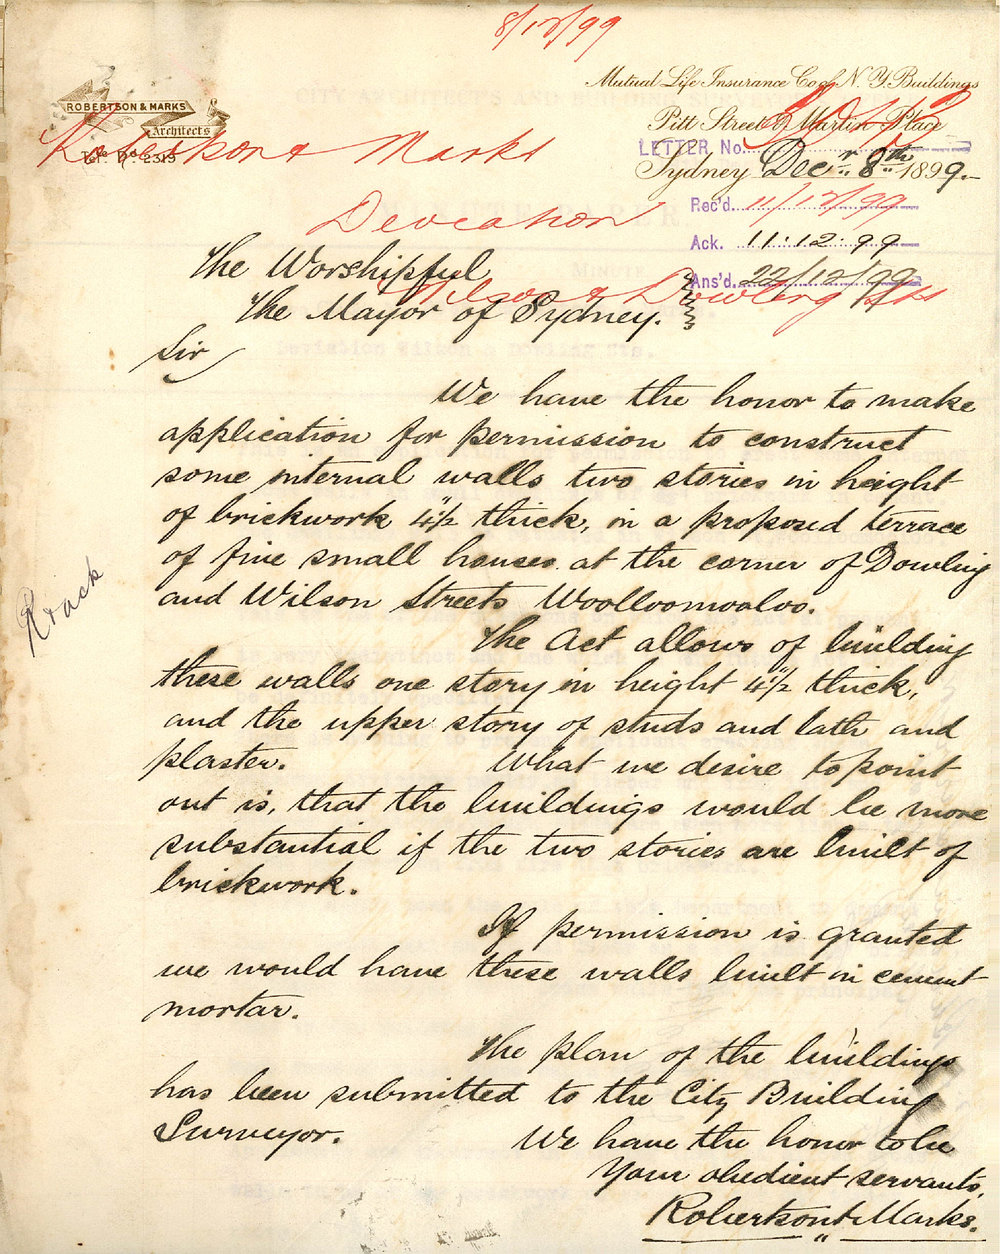 8/12/99
Mutual Life Insurance Co of N.Y. Buildings
Pitt Street & Martin Place
ROBERTSON & MARKS
Architects
Tel. No. 2319
Robertson & Marks
LETTER, No.
Sydney Decr. 8th 1899.
Rec'd. 11/12/99
Deviation
Ack. 11.12.99
Ans'd. 22/12/99
Wilson & Dowling Sts
The Worshipful
The Mayor of Sydney.
Sir
We have the honor to make
application for permission to construct
some internal walls two stories in height
of brickwork 4½" thick, in a proposed terrace
of five small houses at the corner of Dowling
and Wilson Streets Woolloomooloo.
The Act allows of building
these walls one story in height 4½" thick,
and the upper story of studs and lath and
plaster. What we desire to point
out is, that the buildings would be more
substantial if the two stories are built of
brickwork.
If permission is granted
we would have these walls built in cement
mortar.
The plan of the buildings
has been submitted to the City Building
Surveyor.
We have the honor to be
Your obedient servants,
Robertson & Marks.